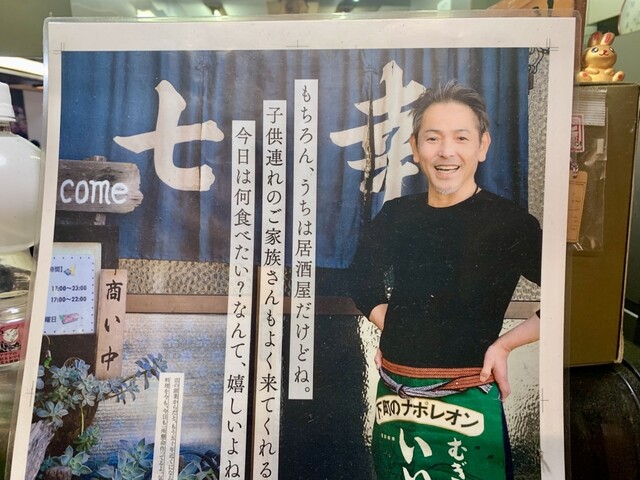 七 幸
もちろん、うちは居酒屋だけどね。
子供連れのご家族さんもよく来てくれる
今日は何食べたい？なんて、嬉しいよね
come
17:00〜23:00
17:00〜22:00
曜日
商い中
下町のナポレオン
むぎ
いい